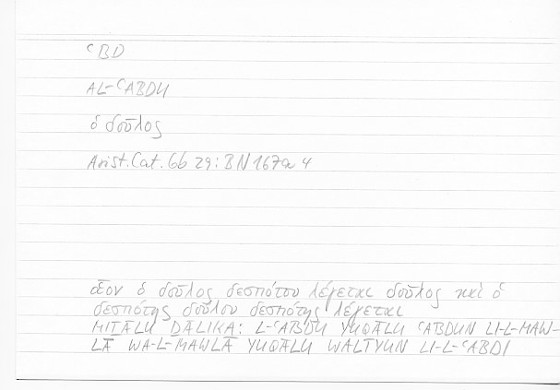 ʿBD
AL-ʿABDU
ὁ δοῦλος
Arist. Cat. 6b 29: BN 167a 4
οἷον ὁ δοῦλος δεσπότου λέγεται δοῦλος καὶ ὁ
δεσπότης δούλου δεσπότης λέγεται
MITALU DALIKA: L-ʿABDU YUQALU ʿABDUN LI-L-MAW-
LĀ WA-L-MAWLĀ YUQALU WALIYUN LI-L-ʿABDI